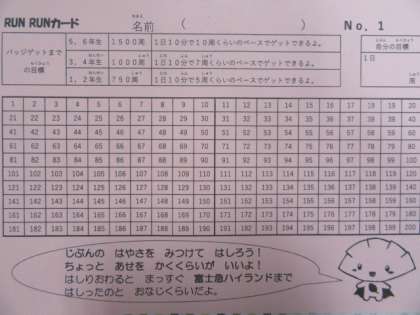 RUN RUNカード 名前 ( ) No.1
バッジゲットまでの目標
5，6年生 1500周 1日10分で10周くらいのペースでゲットできるよ。
3，4年生 1000周 1日10分で7周くらいのペースでゲットできるよ。
1，2年生 750周 1日10分で5周くらいのペースでゲットできるよ。
自分の目標
1日 周
1 2 3 4 5 6 7 8 9 10 11 12 13 14 15 16 17 18 19 20
21 22 23 24 25 26 27 28 29 30 31 32 33 34 35 36 37 38 39 40
41 42 43 44 45 46 47 48 49 50 51 52 53 54 55 56 57 58 59 60
61 62 63 64 65 66 67 68 69 70 71 72 73 74 75 76 77 78 79 80
81 82 83 84 85 86 87 88 89 90 91 92 93 94 95 96 97 98 99 100
101 102 103 104 105 106 107 108 109 110 111 112 113 114 115 116 117 118 119 120
121 122 123 124 125 126 127 128 129 130 131 132 133 134 135 136 137 138 139 140
141 142 143 144 145 146 147 148 149 150 151 152 153 154 155 156 157 158 159 160
161 162 163 164 165 166 167 168 169 170 171 172 173 174 175 176 177 178 179 180
181 182 183 184 185 186 187 188 189 190 191 192 193 194 195 196 197 198 199 200
じぶんの はやさを みつけて はしろう！
ちょっと あせを かくくらいが いいよ！
はしりおわると まっすぐ 富士急ハイランドまで
はしったのと おなじくらいだよ。